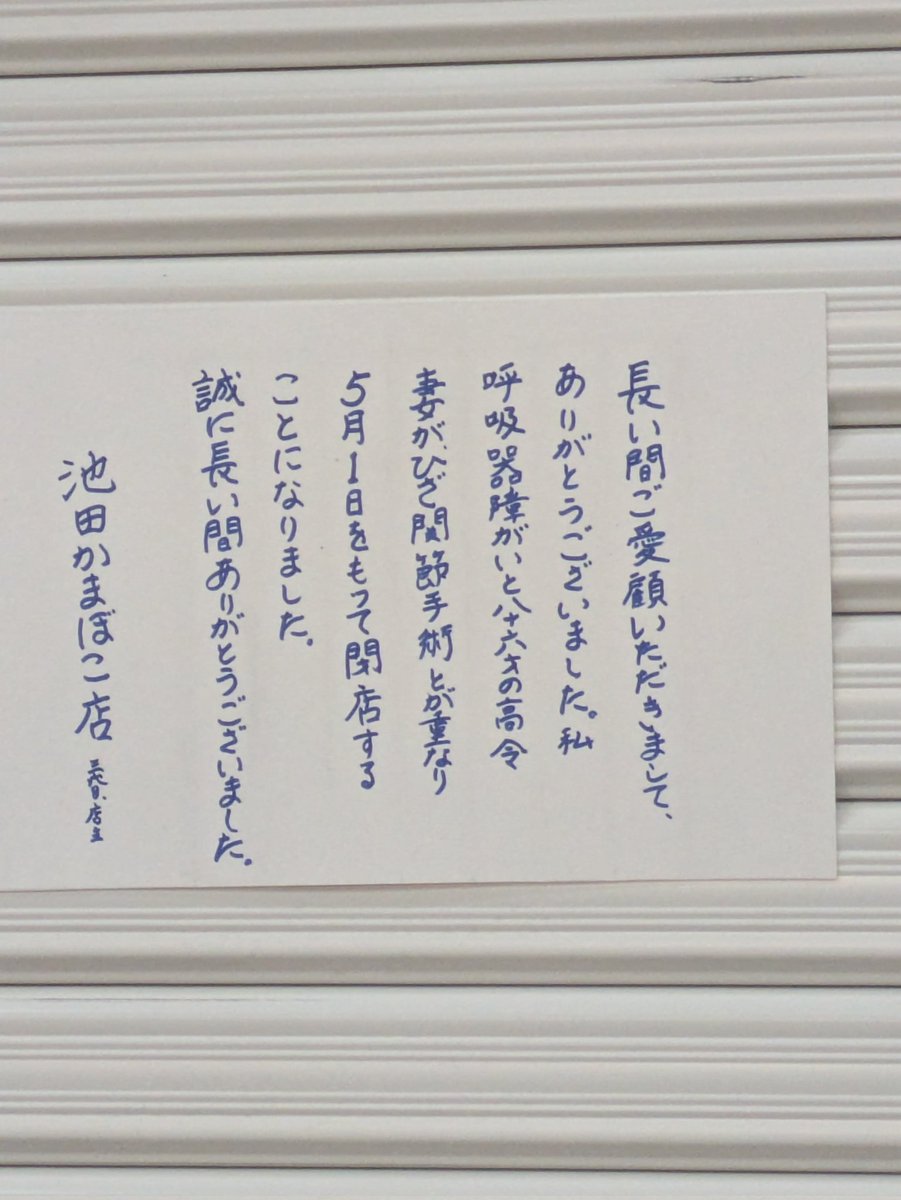 長い間ご愛顧いただきまして、
ありがとうございました。私
呼吸器障がいと八十六才の高令
妻が、ひざ関節手術とが重なり
5月1日をもって閉店する
ことになりました。
誠に長い間ありがとうございました。
池田かまぼこ店 三代目、店主